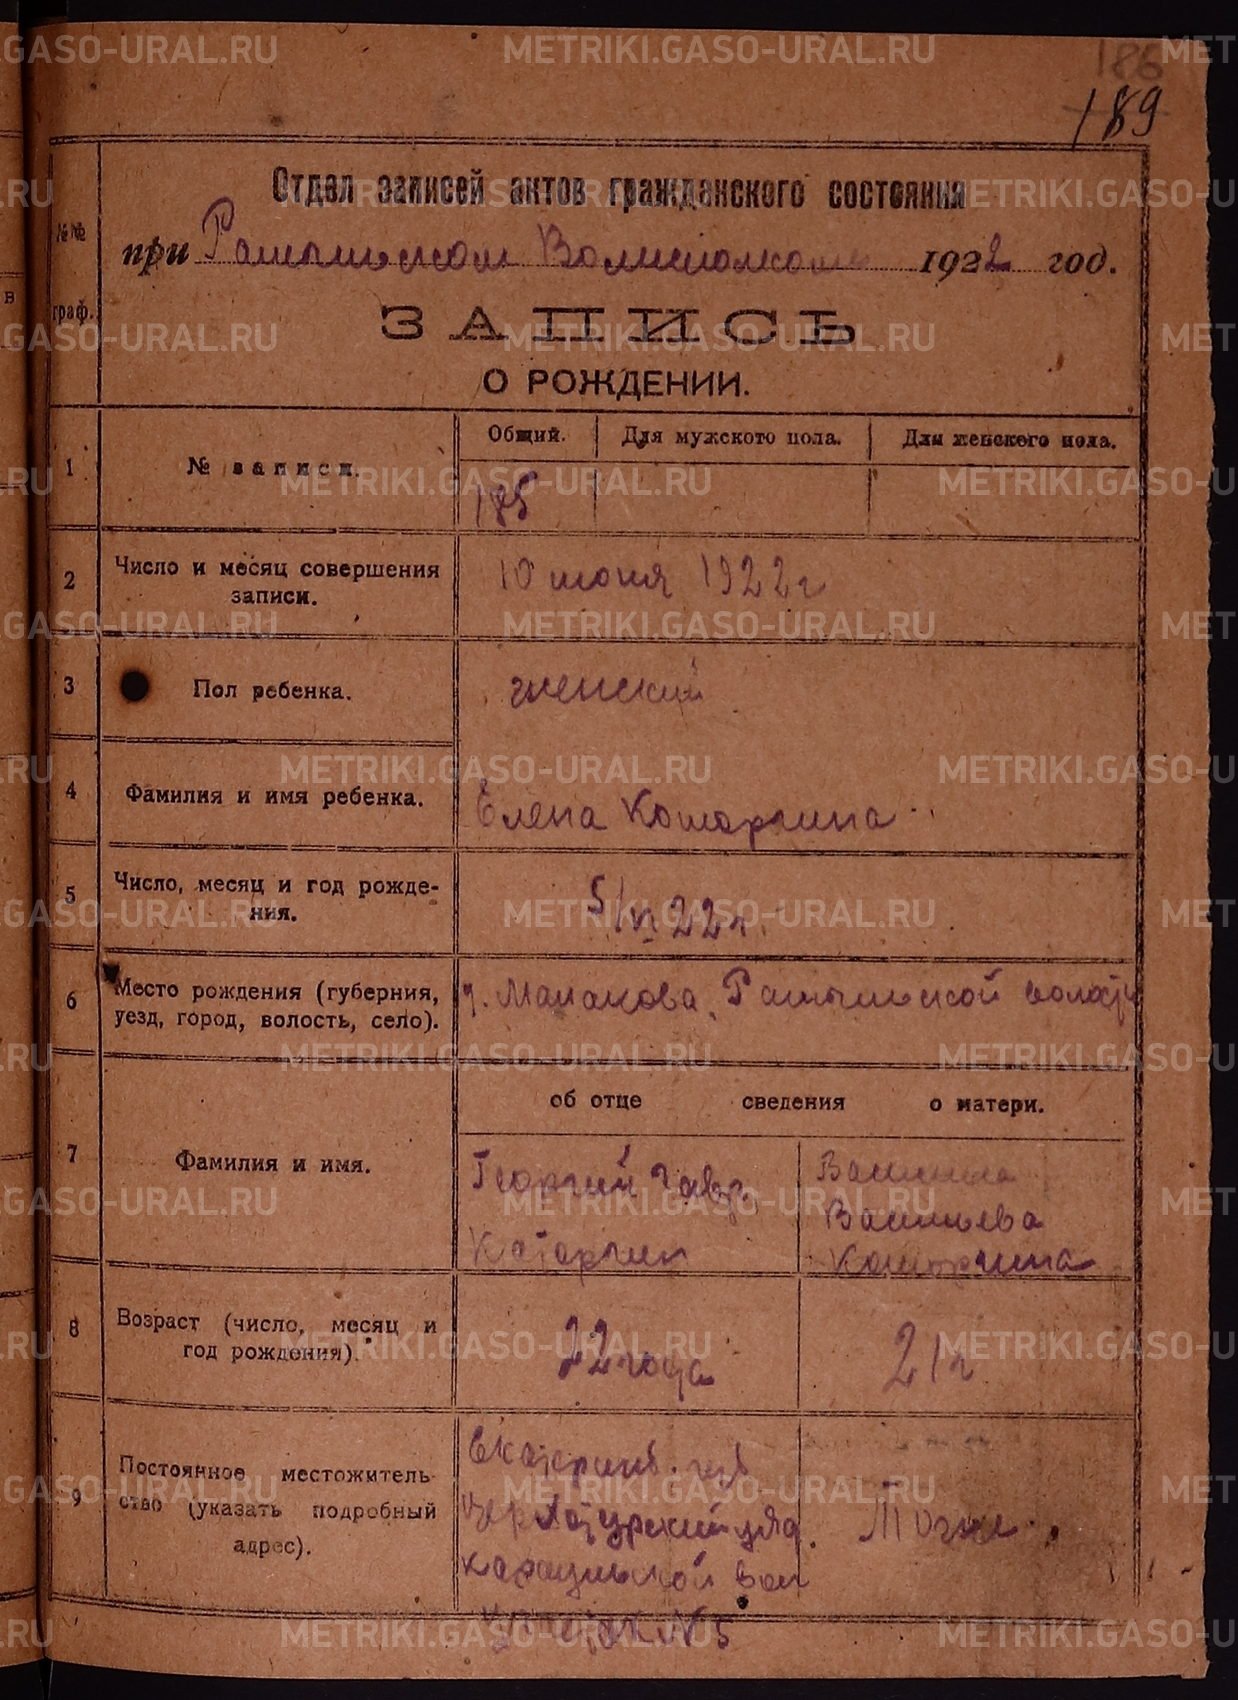 186
189
Отдел записей актов гражданского состояния
№№ граф.
при Волисполкоме 1922 год.
ЗАПИСЬ
О РОЖДЕНИИ.
1 № записи. Общий. Для мужского пола. Для женского пола.
185
2 Число и месяц совершения
записи.
10 июня 1922 г
3 Пол ребенка.
женский
4 Фамилия и имя ребенка.
Елена Катаргина
5 Число, месяц и год рожде-
ния.
5/VI 22 г.
6 Место рождения (губерния,
уезд, город, волость, село).
д. Манакова,
об отце сведения о матери.
7 Фамилия и имя.
Георгий Гавр.
Катаргин
Васильева
Катаргина
8 Возраст (число, месяц и
год рождения).
22 года
21 г
9 Постоянное местожитель-
ство (указать подробный
адрес).
Екатеринб. губ
уезд.
вол
№ 5
METRIKI.GASO-URAL.RU